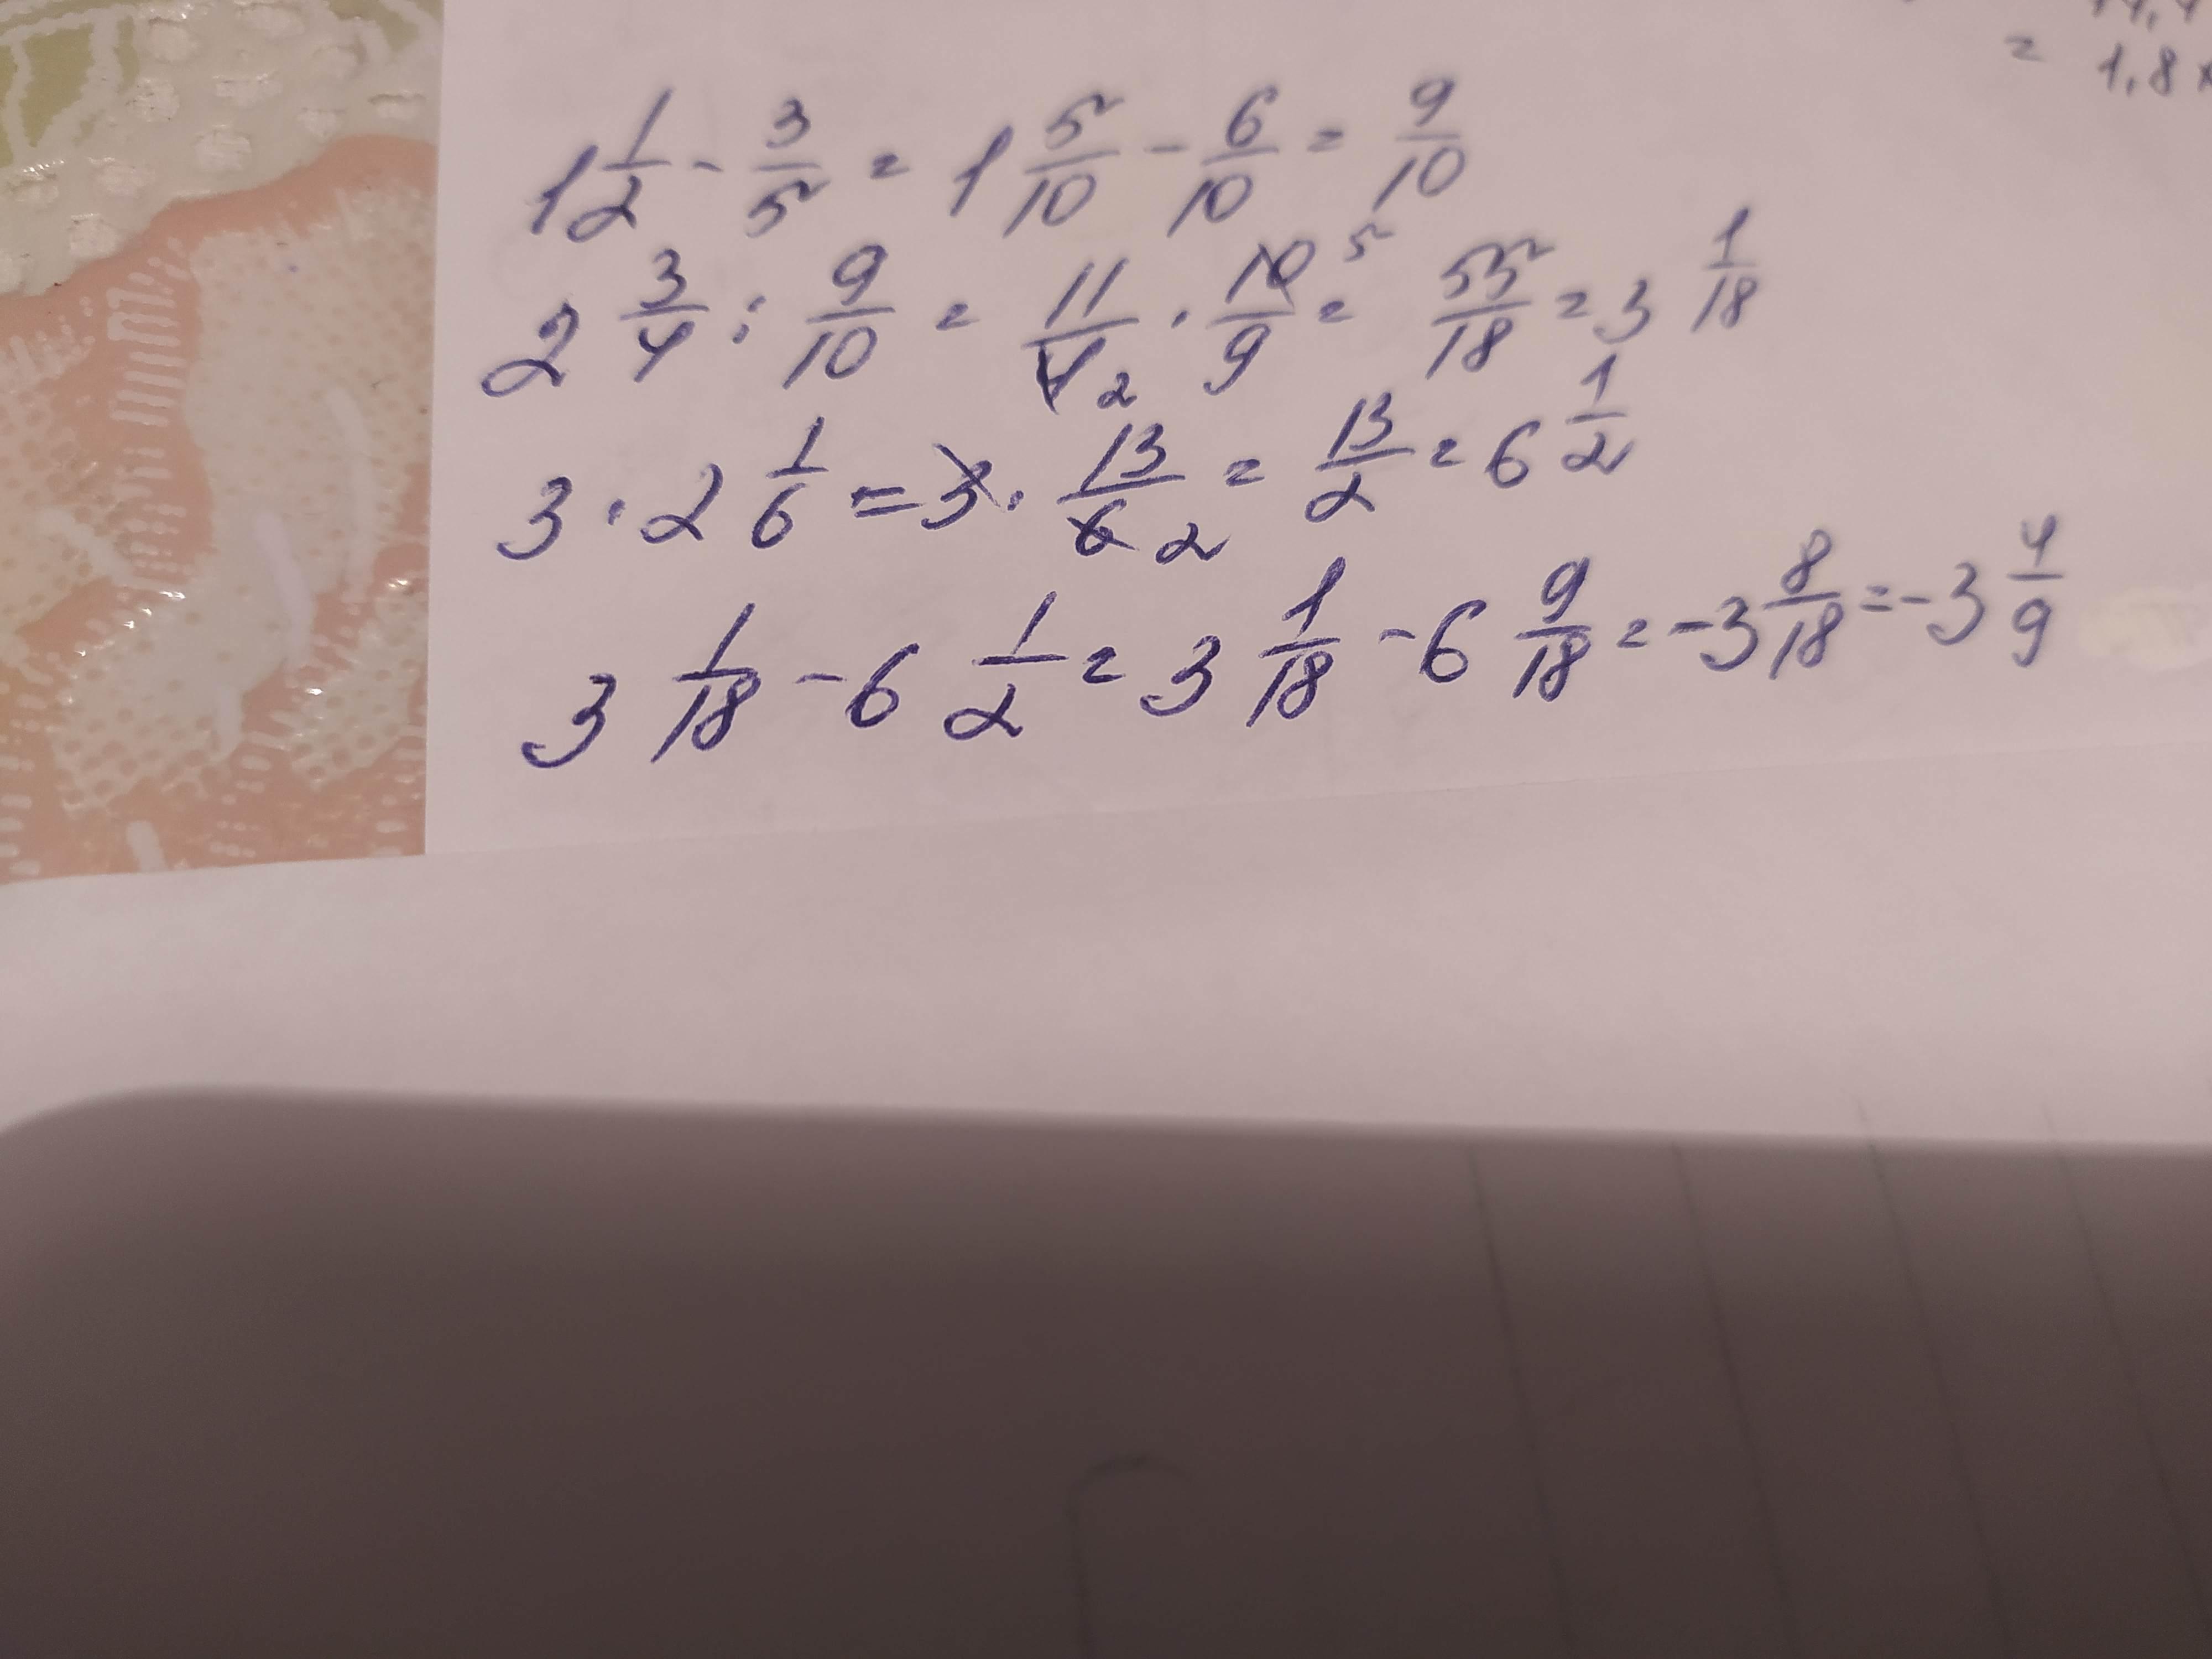 = 1,8
1 1/2 - 3/5 = 1 5/10 - 6/10 = 9/10
2 3/4 : 9/10 = 11/4 2 · 10/9 5 = 55/18 = 3 1/18
3 · 2 1/6 = 3 · 13/6 2 = 13/2 = 6 1/2
3 1/18 - 6 1/2 = 3 1/18 - 6 9/18 = -3 8/18 = -3 4/9